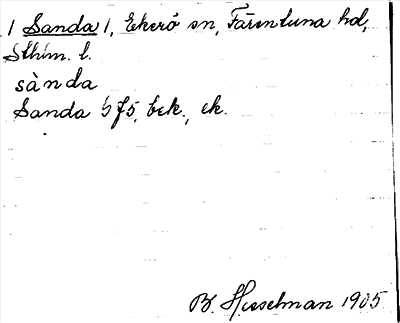 1 Sanda 1, Ekerö sn, Färentuna hd,
Sthlm. l.
sànda
Sanda 5 f5, bek., ek.
B. Hesselman 1905